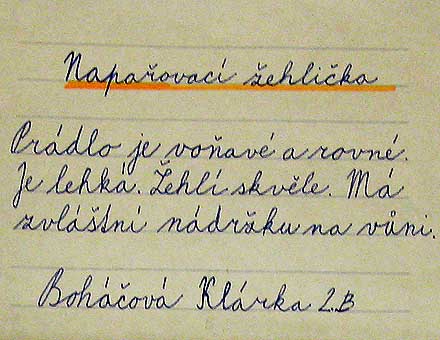 Napařovací žehlička
Prádlo je voňavé a rovné.
Je lehká. Žehlí skvěle. Má
zvláštní nádržku na vůni.
Boháčová Klárka 2.B